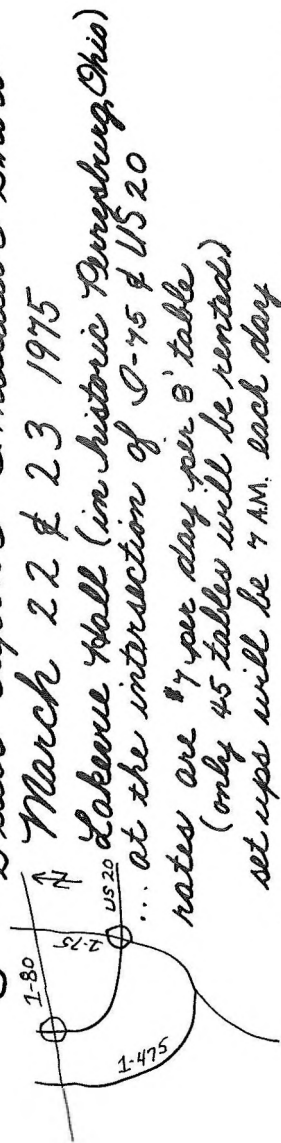 March 22 & 23 1975
Lakevue Hall (in historic Perrysburg, Ohio)
... at the intersection of I-75 & US 20
rates are $7 per day per 8' table
(only 45 tables will be rented)
set ups will be 7 A.M. each day
I-80
I-75
US 20
I-475
N